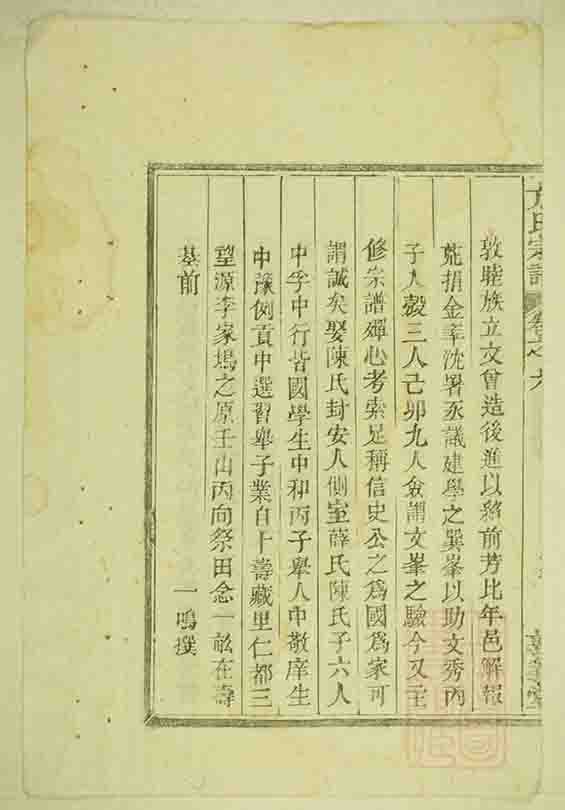 方氏宗譜 卷之六
敦睦族立文會造後進以將前芳比年邑解報
蕘捐金莘沈署丞議建學之巽峯以助文秀丙
子人彀三人己卯九人僉謂文峯之驗今又主
修宗譜殫心考索足稱信史公之爲國爲家可
謂誠矣娶陳氏封安人側室薛氏陳氏子六人
中孚中行皆國學生中和丙子舉人中敬庠生
中豫例貢中選習舉子業自卜壽藏里仁都三
望源李家塢之原壬山丙向祭田念一畝在壽
基前
一鳴撰